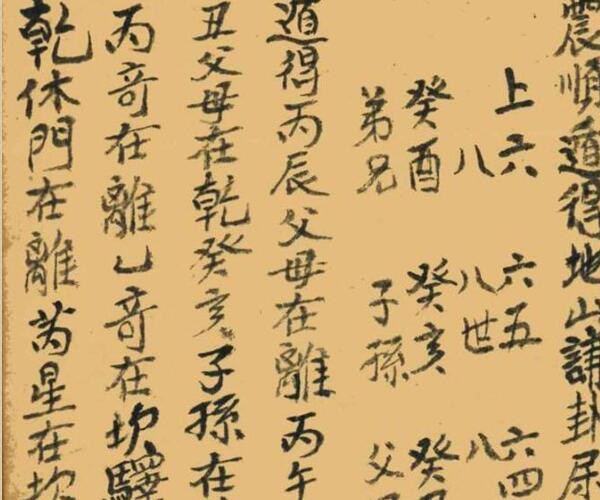 震順遁得地山謙卦
上六 六五 六四
八 八世 八
癸酉 癸亥 癸
弟兄 子孫 父
遁得丙辰父母在離丙午
丑父母在乾癸亥子孫在
丙奇在離乙奇在坎驛
乾休門在離芮星在坎